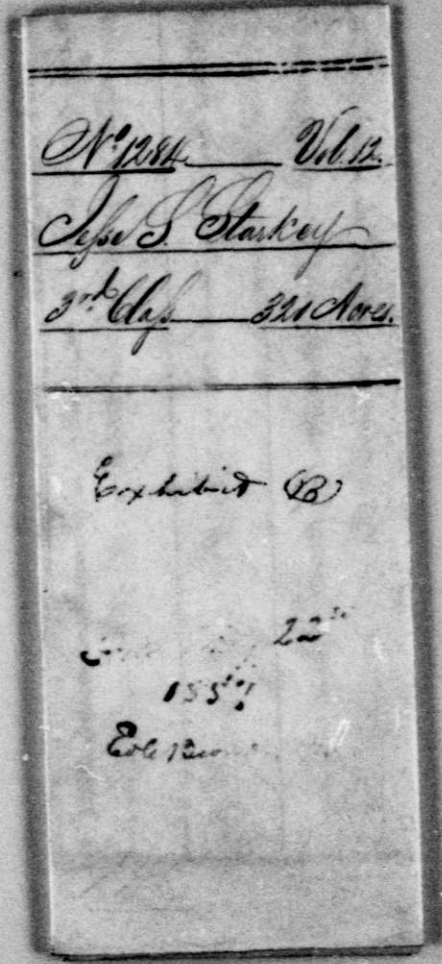 No 1284 Vol. 12.
Jesse S. Starkey
3rd Class 320 Acres.
Exhibit B
22
1857